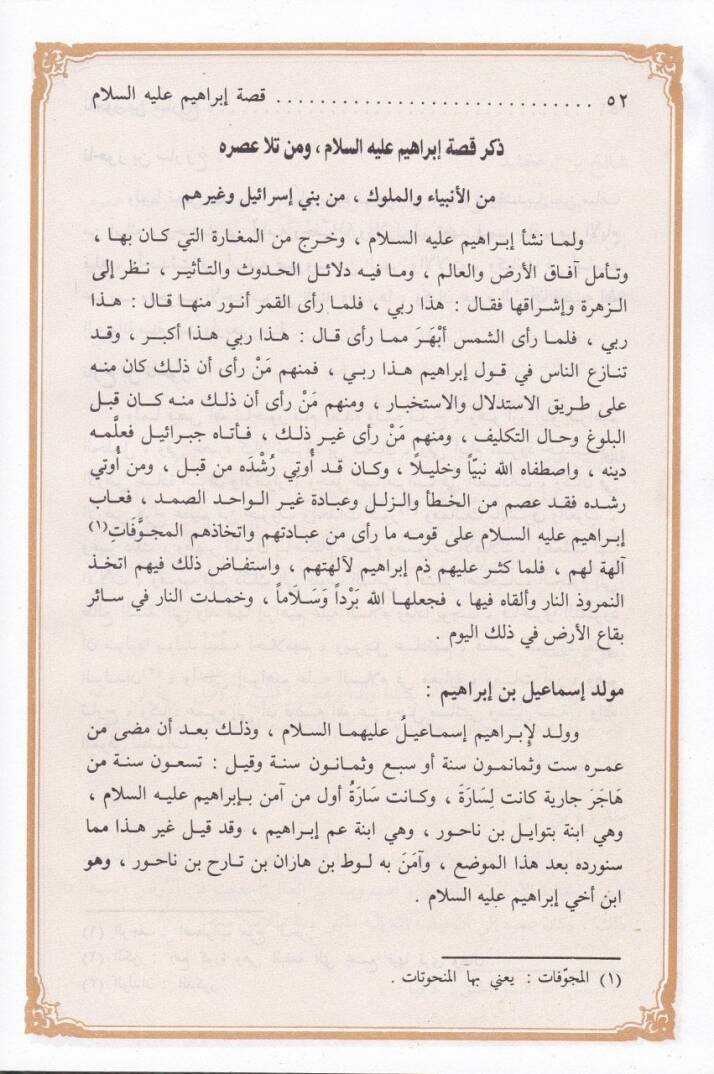 ٥٢ ............................ قصة إبراهيم عليه السلام
ذكر قصة إبراهيم عليه السلام ، ومن تلا عصره
من الأنبياء والملوك ، من بني إسرائيل وغيرهم
ولما نشأ إبراهيم عليه السلام ، وخرج من المغارة التي كان بها ،
وتأمل آفاق الأرض والعالم ، وما فيه دلائل الحدوث والتأثير ، نظر إلى
الزهرة وإشراقها فقال : هذا ربي ، فلما رأى القمر أنور منها قال : هذا
ربي ، فلما رأى الشمس أَبْهَرَ مما رأى قال : هذا ربي هذا أكبر ، وقد
تنازع الناس في قول إبراهيم هذا ربي ، فمنهم مَنْ رأى أن ذلك كان منه
على طريق الاستدلال والاستخبار ، ومنهم مَنْ رأى أن ذلك منه كان قبل
البلوغ وحال التكليف ، ومنهم مَنْ رأى غير ذلك ، فأتاه جبرائيل فعلَّمه
دينه ، واصطفاه الله نبيّاً وخليلاً ، وكان قد أُوتي رُشْدَه من قبل ، ومن أُوتي
رشده فقد عصم من الخطأ والزلل وعبادة غير الواحد الصمد ، فعاب
إبراهيم عليه السلام على قومه ما رأى من عبادتهم واتخاذهم المجوَّفَاتِ(١)
آلهة لهم ، فلما كثر عليهم ذم إبراهيم لآلهتهم ، واستفاض ذلك فيهم اتخذ
النمروذ النار وألقاه فيها ، فجعلها الله بَرْداً وَسَلَاماً ، وخمدت النار في سائر
بقاع الأرض في ذلك اليوم .
مولد إسماعيل بن إبراهيم :
وولد لإبراهيم إسماعيلُ عليهما السلام ، وذلك بعد أن مضى من
عمره ست وثمانمون سنة أو سبع وثمانون سنة وقيل : تسعون سنة من
هَاجَرَ جارية كانت لِسَارَةَ ، وكانت سَارَةُ أول من آمن بإبراهيم عليه السلام ،
وهي ابنة بتوايل بن ناحور ، وهي ابنة عم إبراهيم ، وقد قيل غير هذا مما
سنورده بعد هذا الموضع ، وآمَنَ به لوط بن هازان بن تارح بن ناحور ، وهو
ابن أخي إبراهيم عليه السلام .
(١) المجوّفات : يعني بها المنحوتات .